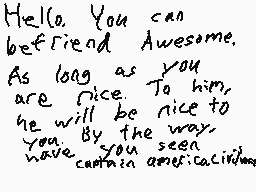 Hello. You can
befriend Awesome.
As long as you
are nice. To him,
he will be nice to
you. By the way,
have you seen
captain america:civilwar